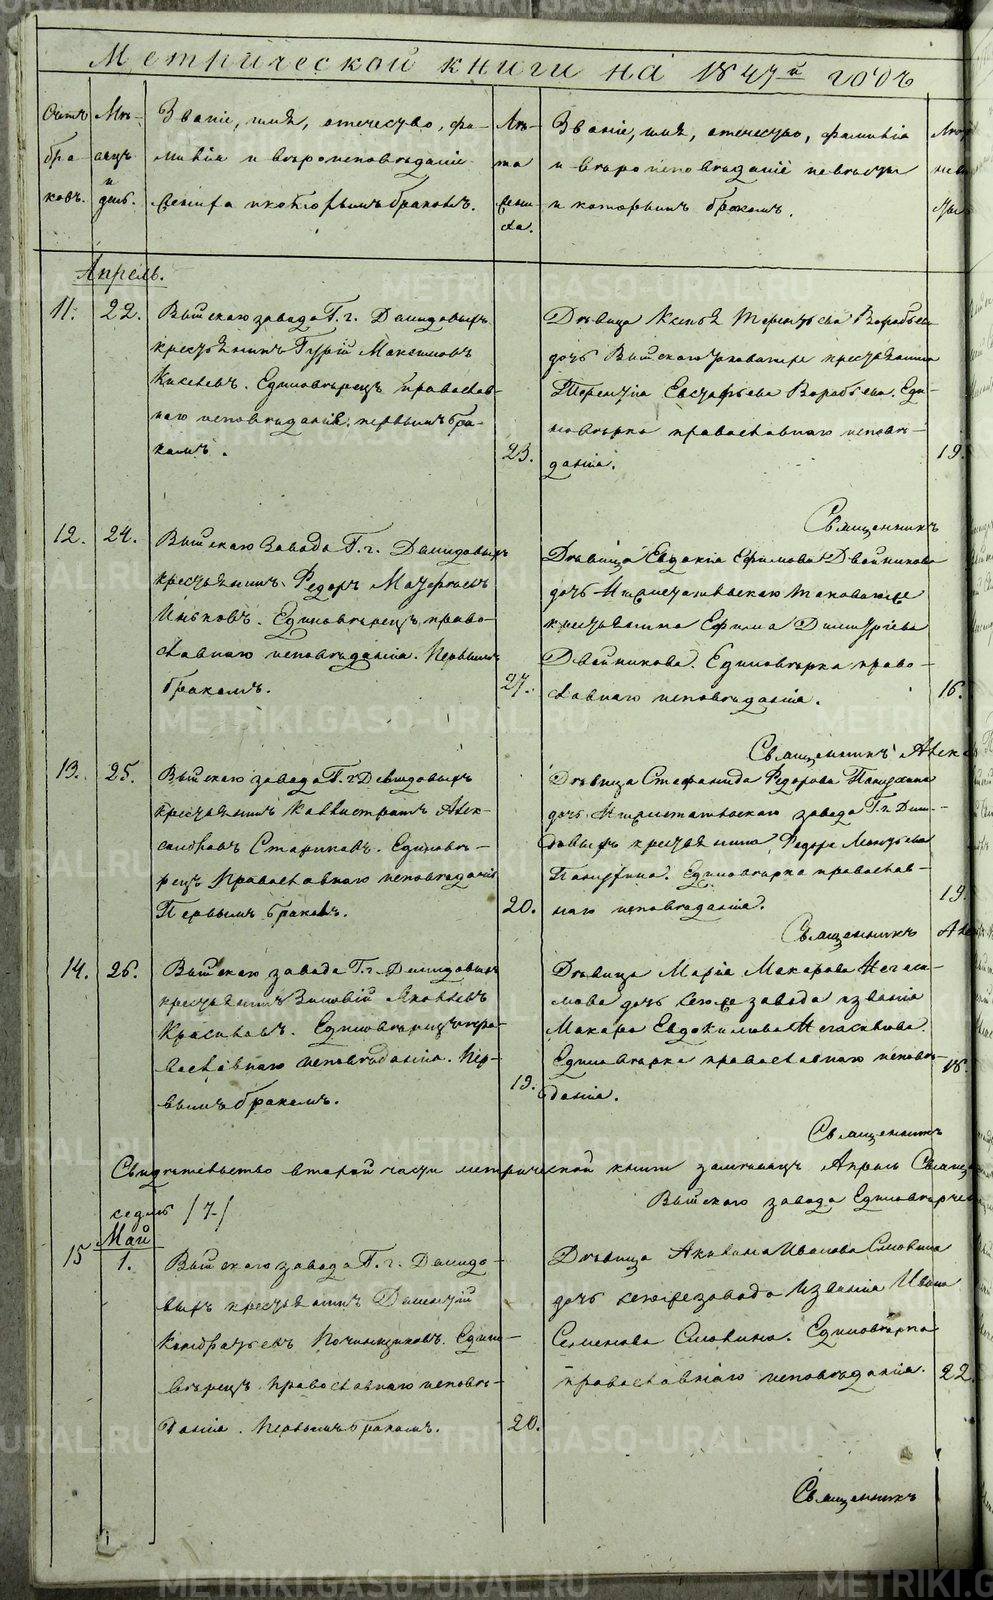 Метрической книги на 1847й годъ
Счетъ браковъ.
Мѣсяцъ и день.
Званіе, имя, отечество, фамилія и вѣроисповѣданіе жениха и которымъ бракомъ.
Лѣта жениха.
Званіе, имя, отечество, фамилія и вѣроисповѣданіе невѣсты и которымъ бракомъ.
Апрель.
11. 22.
Выйскаго завода Г. г. Демидовыхъ
крестьянинъ Гурій Максимовъ
Киселевъ. Единовѣрецъ православ-
наго исповѣданія. первымъ бра-
комъ.
23.
Дѣвица Ксенія Терентьева Воробьева
дочь Выйскаго заводa крестьянина
Терентія Евстафьева Воробьева. Еди-
новѣрка православнаго исповѣ-
данія.
19.
Священникъ
12. 24.
Выйскаго Завода Г. г. Демидовыхъ
крестьянинъ Федоръ
Единовѣрецъ право-
славнаго исповѣданія. Первымъ
бракомъ.
27.
Дѣвица Евдокія Ефимова Двойникова
дочь Нижнетагильскаго таковаго же
крестьянина Ефима Димитріева
Двойникова. Единовѣрка право-
славнаго исповѣданія.
16.
Священникъ
13. 25.
Выйскаго завода Г. г. Демидовыхъ
крестьянинъ Каллистратъ Алек-
сандровъ Стариковъ. Единовѣ-
рецъ Православнаго исповѣданія
Первымъ бракомъ.
20.
Дѣвица Стефанида Федорова
дочь Нижнетагильскаго завода Г. г. Деми-
довыхъ крестьянина Федора
Единовѣрка православ-
наго исповѣданія.
19.
Священникъ
14. 26.
Выйскаго завода Г. г. Демидовыхъ
крестьянинъ Зиновій Яковлевъ
Красиловъ. Единовѣрецъ пра-
вославнаго исповѣданія. Пер-
вымъ бракомъ.
19.
Дѣвица Марія Макарова
дочь сего же завода и званія
Макара Евдокимова
Единовѣрка православнаго исповѣ-
данія.
18.
Священникъ
Свидѣтельство второй части метрической книги за мѣсяцъ Апрель
седмь /7/
Выйскаго завода
Май
15 1.
Выйскаго завода Г. г. Демидо-
выхъ крестьянинъ Дементій
Кондратьевъ Починщиковъ. Едино-
вѣрецъ православнаго исповѣ-
данія. Первымъ бракомъ.
20.
Дѣвица Акилина Иванова
дочь сего же завода и званія Ивана
Семенова Единовѣрка
православнаго исповѣданія.
22.
Священникъ
METRIKI.GASO-URAL.RU